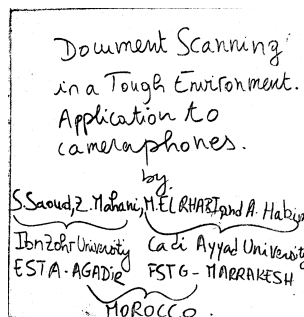 Document Scanning
in a Tough Environment.
Application to
cameraphones.
by
S.Saoud, Z. Mahani, M. EL RHABI, and A. Hakim
Ibn Zohr University Cadi Ayyad University
ESTA - AGADIR FSTG - MARRAKESH
MOROCCO.